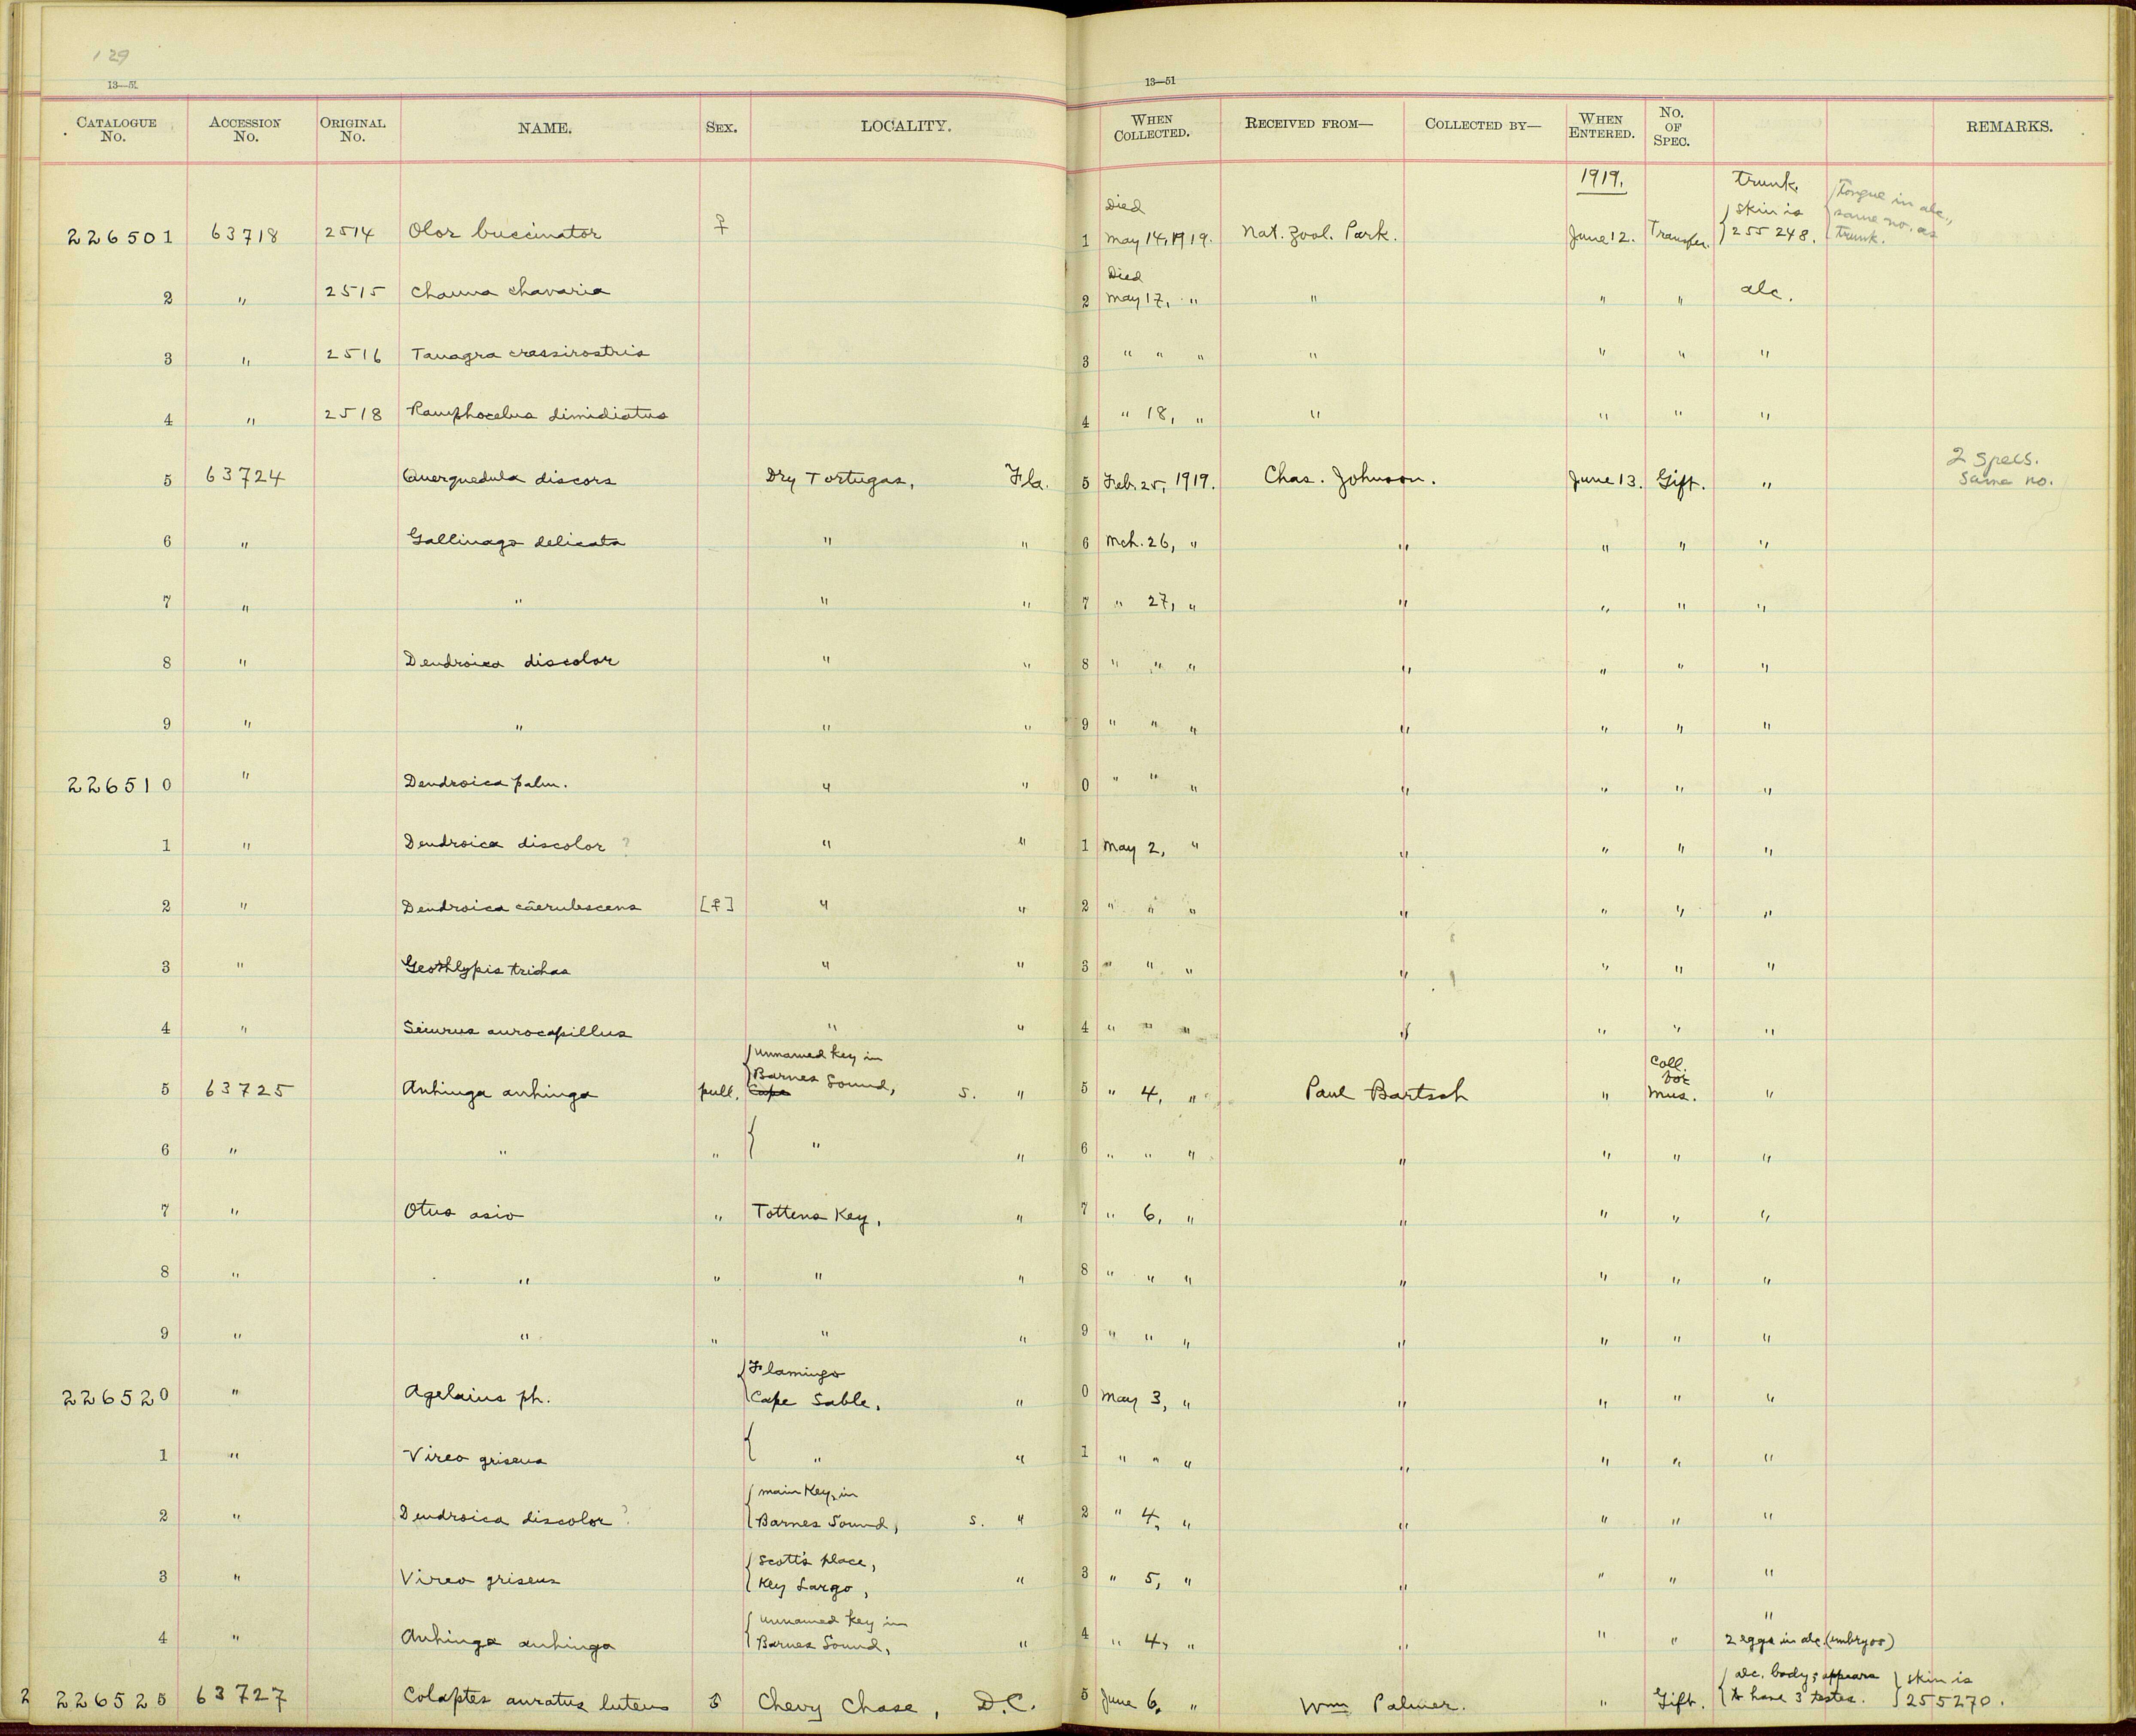 129
13—51 13—51
CATALOGUE No. ACCESSION No. ORIGINAL No. NAME. SEX. LOCALITY. WHEN COLLECTED. RECEIVED FROM— COLLECTED BY— WHEN ENTERED. No. OF SPEC. REMARKS.
1919. trunk.
226501 63718 2514 Olor buccinator ♀ 1 Died May 14, 1919. Nat. Zool. Park. June 12. Transfer. { skin is 255248. { Tongue in alc., same no. as trunk.
2 " 2515 Chauna chavaria 2 Died May 17, " " " " alc.
3 " 2516 Tanagra crassirostris 3 " " " " " " "
4 " 2518 Ramphocelus dimidiatus 4 " 18, " " " " "
5 63724 Querquedula discors Dry Tortugas, Fla. 5 Feb. 25, 1919. Chas. Johnson. June 13. Gift. " 2 specs. same no.
6 " Gallinago delicata " " 6 Mch. 26, " " " " "
7 " " " " 7 " 27, " " " " "
8 " Dendroica discolor " " 8 " " " " " " "
9 " " " " 9 " " " " " " "
226510 " Dendroica palm. " " 0 " " " " " " "
1 " Dendroica discolor ? " " 1 May 2, " " " " "
2 " Dendroica cäerulescens [♀] " " 2 " " " " " " "
3 " Geothlypis trichas " " 3 " " " " " " "
4 " Seiurus aurocapillus " " 4 " " " " " " "
5 63725 Anhinga anhinga pull. { unnamed key in Barnes Sound, Cape S. " 5 " 4, " Paul Bartsch " Coll. for Mus. "
6 " " " { " " 6 " " " " " " "
7 " Otus asio " Tottens Key, " 7 " 6, " " " " "
8 " " " " " 8 " " " " " " "
9 " " " " " 9 " " " " " " "
226520 " Agelaius ph. { Flamingo Cape Sable, " 0 May 3, " " " " "
1 " Vireo griseus { " " 1 " " " " " " "
2 " Dendroica discolor ? { main Key, in Barnes Sound, S. " 2 " 4, " " " " "
3 " Vireo griseus { Scott's place, Key Largo, " 3 " 5, " " " " "
4 " Anhinga anhinga { unnamed key in Barnes Sound, " 4 " 4, " " " " " 2 eggs in alc. (embryos)
2 226525 63727 Colaptes auratus luteus ♂ Chevy Chase, D.C. 5 June 6, " Wm Palmer. " Gift. { alc. body; appears to have 3 testes. } skin is 255270.